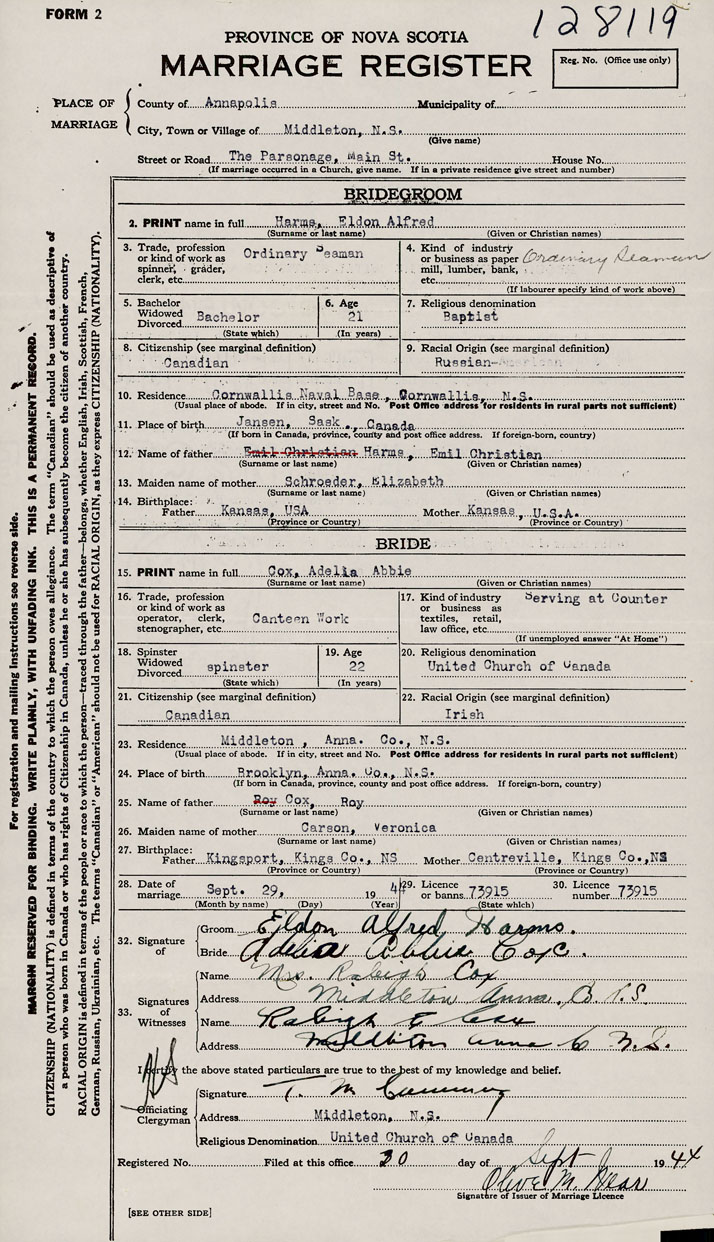 FORM 2
128119
PROVINCE OF NOVA SCOTIA
MARRIAGE REGISTER
Reg. No. (Office use only)
PLACE OF MARRIAGE
County of Annapolis Municipality of
City, Town or Village of Middleton, N.S.
(Give name)
Street or Road The Parsonage, Main St. House No.
(If marriage occurred in a Church, give name. If in a private residence give street and number)
BRIDEGROOM
2. PRINT name in full Harms, Eldon Alfred
(Surname or last name) (Given or Christian names)
3. Trade, profession or kind of work as spinner, grader, clerk, etc. Ordinary Seaman
4. Kind of industry or business as paper mill, lumber, bank, etc. Ordinary Seaman
(If labourer specify kind of work above)
5. Bachelor Widowed Divorced Bachelor
(State which)
6. Age 21
(In years)
7. Religious denomination
Baptist
8. Citizenship (see marginal definition)
Canadian
9. Racial Origin (see marginal definition)
Russian-
10. Residence Cornwallis Naval Base, Cornwallis, N.S.
(Usual place of abode. If in city, street and No. Post Office address for residents in rural parts not sufficient)
11. Place of birth Jansen, Sask., Canada
(If born in Canada, province, county and post office address. If foreign-born, country)
12. Name of father Emil Christian Harms, Emil Christian
(Surname or last name) (Given or Christian names)
13. Maiden name of mother Schroeder, Elizabeth
(Surname or last name) (Given or Christian names)
14. Birthplace:
Father Kansas, USA Mother Kansas, U.S.A.
(Province or Country) (Province or Country)
BRIDE
15. PRINT name in full Cox, Adelia Abbie
(Surname or last name) (Given or Christian names)
16. Trade, profession or kind of work as operator, clerk, stenographer, etc. Canteen Work
17. Kind of industry or business as textiles, retail, law office, etc. Serving at Counter
(If unemployed answer "At Home")
18. Spinster Widowed Divorced spinster
(State which)
19. Age 22
(In years)
20. Religious denomination
United Church of Canada
21. Citizenship (see marginal definition)
Canadian
22. Racial Origin (see marginal definition)
Irish
23. Residence Middleton, Anna. Co., N.S.
(Usual place of abode. If in city, street and No. Post Office address for residents in rural parts not sufficient)
24. Place of birth Brooklyn, Anna. Co., N.S.
(If born in Canada, province, county and post office address. If foreign-born, country)
25. Name of father Roy Cox, Roy
(Surname or last name) (Given or Christian names)
26. Maiden name of mother Carson, Veronica
(Surname or last name) (Given or Christian names)
27. Birthplace:
Father Kingsport, Kings Co., NS Mother Centreville, Kings Co., NS
(Province or Country) (Province or Country)
28. Date of marriage Sept. 29, 1944
(Month by name) (Day) (Year)
29. Licence or banns 73915
(State which)
30. Licence number 73915
32. Signature of
Groom Eldon Alfred Harms.
Bride Adelia Abbie Cox.
33. Signatures of Witnesses
Name Mrs. Raleigh Cox
Address Middleton Anna. Co N.S.
Name Raleigh E Cox
Address Middleton Anna Co N.S.
I certify the above stated particulars are true to the best of my knowledge and belief.
HS
Officiating Clergyman
Signature T. M
Address Middleton, N.S.
Religious Denomination United Church of Canada
Registered No. Filed at this office 30 day of Sept 1944
Olive M.
Signature of Issuer of Marriage Licence
[SEE OTHER SIDE]
For registration and mailing instructions see reverse side.
MARGIN RESERVED FOR BINDING. WRITE PLAINLY, WITH UNFADING INK. THIS IS A PERMANENT RECORD.
CITIZENSHIP (NATIONALITY) is defined in terms of the country to which the person owes allegiance. The term "Canadian" should be used as descriptive of
a person who was born in Canada or who has rights of Citizenship in Canada, unless he or she has subsequently become the citizen of another country.
RACIAL ORIGIN is defined in terms of the people or race to which the person—traced through the father—belongs, whether English, Irish, Scottish, French,
German, Russian, Ukrainian, etc. The terms "Canadian" or "American" should not be used for RACIAL ORIGIN, as they express CITIZENSHIP (NATIONALITY).